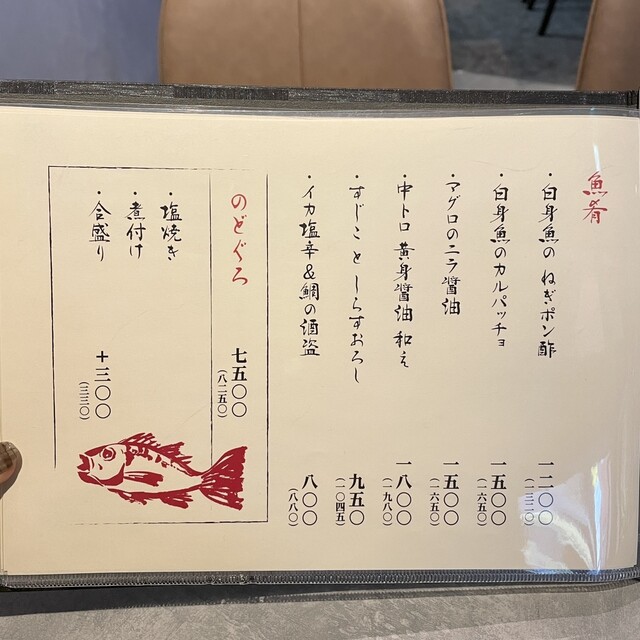 魚肴
・白身魚の ねぎポン酢 一二〇〇
（一三二〇）
・白身魚のカルパッチョ 一五〇〇
（一六五〇）
・マグロのニラ醤油 一五〇〇
（一六五〇）
・中トロ 黄身醤油 和え 一八〇〇
（一九八〇）
・すじこ と しらすおろし 九五〇
（一〇四五）
・イカ塩辛&鯛の酒盗 八〇〇
（八八〇）
のどぐろ 七五〇〇
（八二五〇）
・塩焼き
・煮付け
・合盛り +三〇〇
（三三〇）